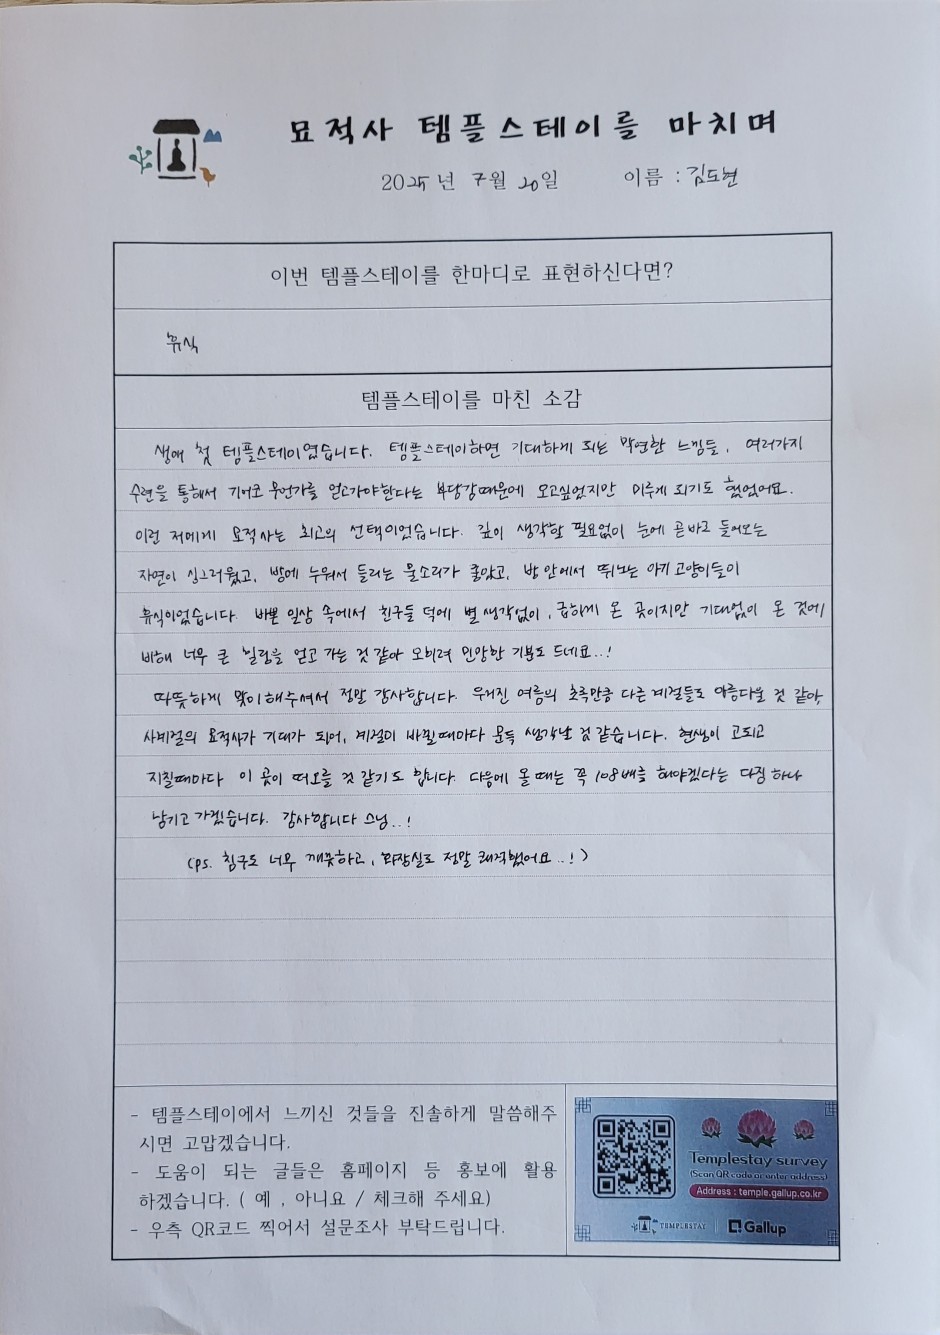 묘적사 템플스테이를 마치며
2025년 7월 20일 이름 : 김도현
이번 템플스테이를 한마디로 표현하신다면?
휴식
템플스테이를 마친 소감
생애 첫 템플스테이였습니다. 템플스테이하면 기대하게 되는 막연한 느낌들, 여러가지
수련을 통해서 기어코 무언가를 얻고가야한다는 부담감때문에 오고싶었지만 미루게 되기도 했었어요.
이런 저에게 묘적사는 최고의 선택이었습니다. 깊이 생각할 필요없이 눈에 곧바로 들어오는
자연이 싱그러웠고, 방에 누워서 들리는 물소리가 좋았고, 방 안에서 뛰노는 아기 고양이들이
휴식이었습니다. 바쁜 일상 속에서 친구들 덕에 별 생각없이, 급하게 온 곳이지만 기대없이 온 것에
비해 너무 큰 힐링을 얻고 가는 것 같아 오히려 민망한 기분도 드네요..!
따뜻하게 맞이해주셔서 정말 감사합니다. 우거진 여름의 초록만큼 다른 계절들도 아름다울 것 같아,
사계절의 묘적사가 기대가 되어, 계절이 바뀔때마다 문득 생각날 것 같습니다. 현생이 고되고
지칠때마다 이 곳이 떠오를 것 같기도 합니다. 다음에 올 때는 꼭 108배를 해야겠다는 다짐 하나
남기고 가겠습니다. 감사합니다 스님..!
(ps. 침구도 너무 깨끗하고, 화장실도 정말 쾌적했어요..!)
- 템플스테이에서 느끼신 것들을 진솔하게 말씀해주
시면 고맙겠습니다.
- 도움이 되는 글들은 홈페이지 등 홍보에 활용
하겠습니다. ( 예 , 아니요 / 체크해 주세요)
- 우측 QR코드 찍어서 설문조사 부탁드립니다.
Templestay survey
(Scan QR code or enter address)
Address : temple.gallup.co.kr
TEMPLESTAY
Gallup